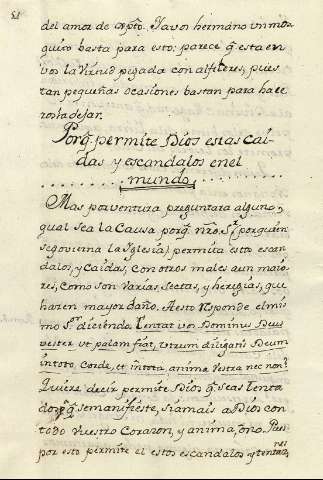 51
del amor de xpto. Ia vos hermano un mos
quito basta para esto: parece q̃ esta en
vos la Virtud pegada con alfileres, pues
tan pequeñas ocasiones bastan para hace
rosla dejar.
Porq̃ permite Dios estas cai-
das y escandalos en el
mundo
Mas por ventura preguntara alguno,
qual sea la Causa porq̃ nr̃o Sr. (por quien
se govierna la Iglesia) permita estos escan
dalos, y Caidas, con otros males aun maio-
res, como son varias Sectas, y heregias, que
hacen mayor daño. A esto responde el mis
mo Sr. diciendo. Tentat vos Dominus Deus
vester ut palam fiat, utrum diligatis Deum
in toto, corde, et in tota, anima Vestra nec non?
Quiere decir permite Dios q̃ seas tenta
do, pa. q̃ se manifieste, si amais a Dios con
todo Vuestro Corazon, y anima, o no. Pues
por esto permite el estos escandalos y tentac
nes